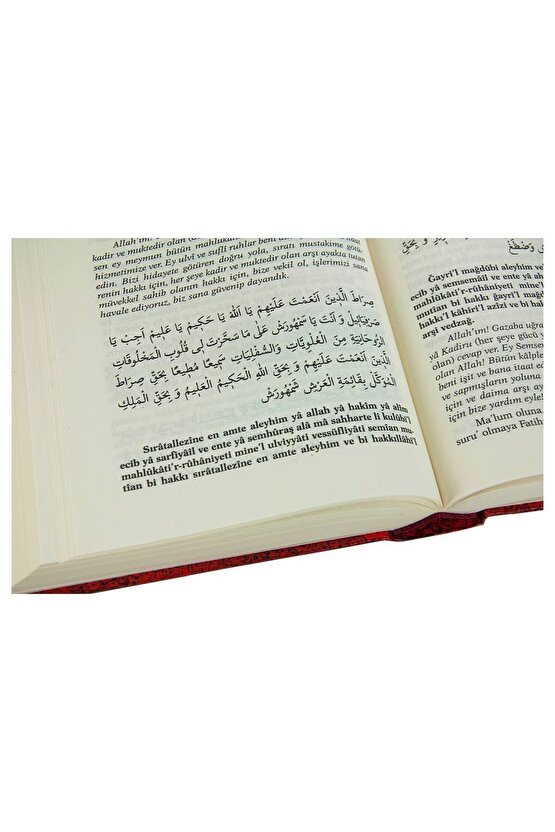 Allah'im! Ey bütün mahlûkân
kadir ve muktedir olan
sen ey meymun bütün mahlûkân
hizmetimize ver. Ey ulvî ve suflî ruhlar beni
edin. Bizi hidayete götüren doğru yola, sıratı mustakime götü-
renin hakkı için, her şeye kadir ve muktedir olan arşı ayakta tutan
müvekkel sahib olanın hakkı için, bize vekil ol, işlerimizi sana
havale ediyoruz, biz sana güvenip dayandık.
صِرَاطَ الَّذِينَ اَنْعَمْتَ عَلَيْهِمْ يَا اَللهُ يَا حَكِيمُ يَا عَلِيمُ اَجِبْ يَا
صَرْفَيَائِيلُ وَ اَنْتَ يَا سَمْهُورَشُ عَلَى مَا سَخَّرْتَ لِى قُلُوبَ الْمَخْلُوقَاتِ
الرُّوحَانِيَّةِ مِنَ الْعُلْوِيَّاتِ وَالسُّفْلِيَّاتِ سَمِيعًا مُطِيعًا بِحَقِّ صِرَاطَ
الَّذِينَ اَنْعَمْتَ عَلَيْهِمْ وَ بِحَقِّ اللهِ الْحَكِيمِ الْعَلِيمِ وَ بِحَقِّ الْمَلِكِ
الْمُوَكَّلِ بِقَائِمَةِ الْعَرْشِ سَمْهُورَشُ
Sırâtallezîne en amte aleyhim yâ allah yâ hakîm yâ alîm
ecib yâ sarfiyâil ve ente yâ semhûraş alâ mâ sahharte lî kulûbi'l
mahlûkâti'r-rûhâniyeti mine'l ulviyyâti vessüfliyâti semîan mu-
tîan bi hakkı sırâtallezîne en amte aleyhim ve bi hakkıllâhi'l
Ğayri'l mağdûbi aleyhim
ecib yâ semsemâil ve ente yâ
mahlûkâti'r-rûhâniyeti mine'l
mutîan bi hakkı ğayri'l mağ
l kâhiri'l azîzi ve bi hak
arşı vedzağ.
Allah'im! Gazaba uğra
yâ Kadiru (her şeye gücü
olan) cevap ver. Ey Semse
olan Allah! Bütün kâlple
beni işit ve bana itaat ed
ve sapmışların yoluna
ve daima arşı ay
için bize yardım eyle!
Ma'lum oluna
suru' olmaya Fatih